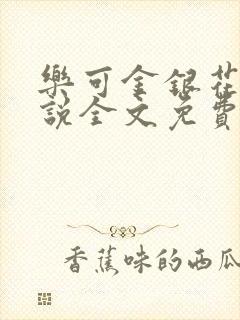 樂可金銀花
說全文免費
香蕉味的西瓜